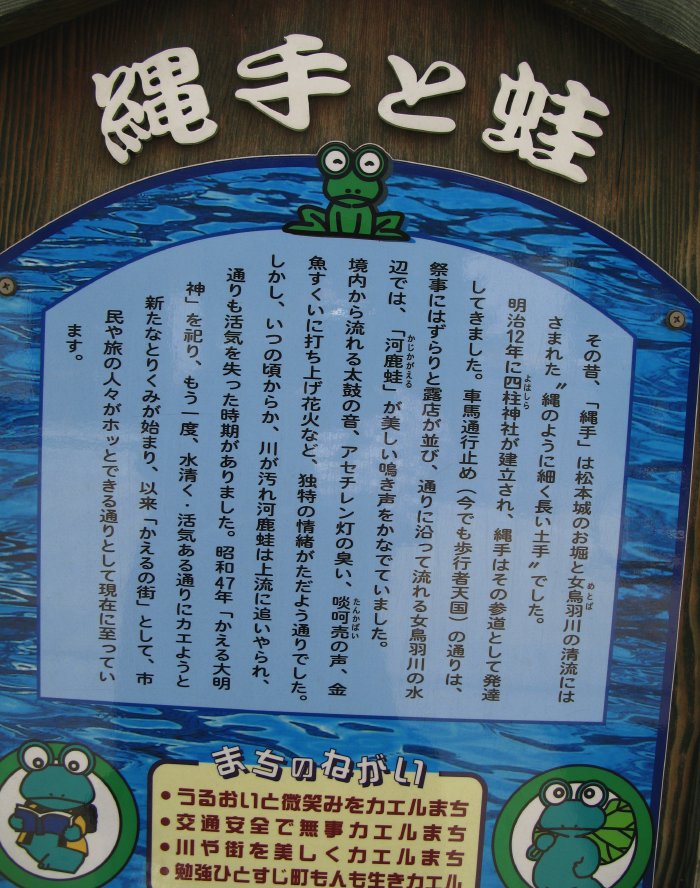 縄手と蛙
その昔、「縄手」は松本城のお堀と女鳥羽川の清流には
めとば
さまれた〝縄のように細く長い土手〟でした。
明治12年に四柱神社が建立され、縄手はその参道として発達
よはしら
してきました。車馬通行止め（今でも歩行者天国）の通りは、
祭事にはずらりと露店が並び、通りに沿って流れる女鳥羽川の水
辺では、「河鹿蛙」が美しい鳴き声をかなでていました。
かじかがえる
境内から流れる太鼓の音、アセチレン灯の臭い、啖呵売の声、金
たんかばい
魚すくいに打ち上げ花火など、独特の情緒がただよう通りでした。
しかし、いつの頃からか、川が汚れ河鹿蛙は上流に追いやられ、
通りも活気を失った時期がありました。昭和47年「かえる大明
神」を祀り、もう一度、水清く・活気ある通りにカエようと
新たなとりくみが始まり、以来「かえるの街」として、市
民や旅の人々がホッとできる通りとして現在に至ってい
ます。
まちのねがい
•うるおいと微笑みをカエルまち
•交通安全で無事カエルまち
•川や街を美しくカエルまち
•勉強ひとすじ町も人も生きカエル